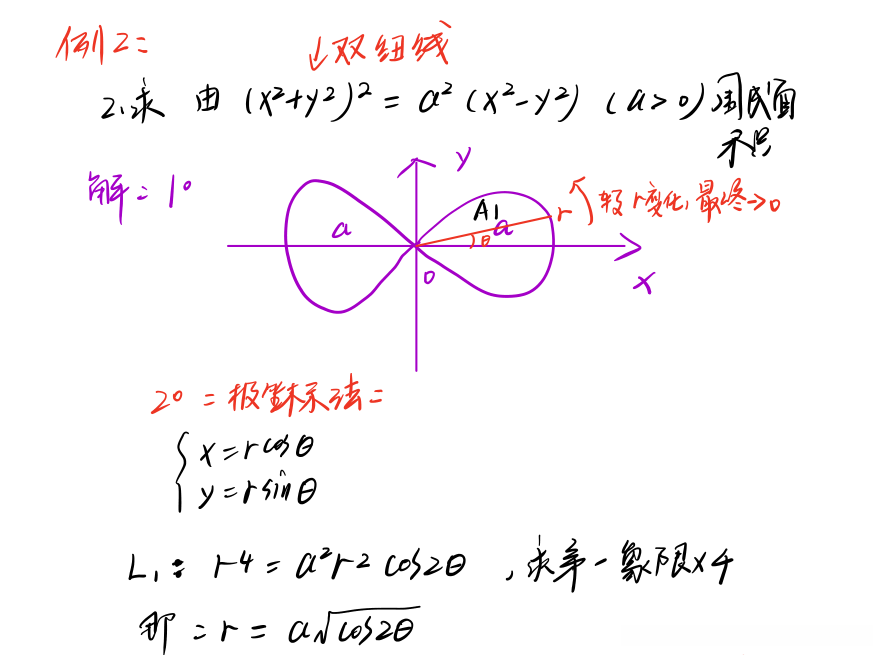 例2:
↓双纽线
2、求 由 (x²+y²)² = a² (x²-y²) (a>0) 围成面
积
解: 1°
y
A1
a
a
r
较r变化,最终→0
θ
0
x
2° :极坐标示法:
{ x = r cosθ
y = r sinθ
L₁: r⁴ = a²r² cos2θ ,求第一象限×4
即: r = a√cos2θ